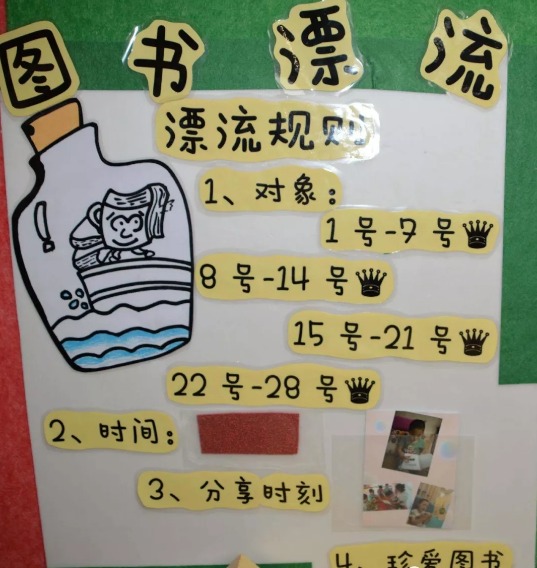 图书漂流
漂流规则
1、对象：
1号-7号
8号-14号
15号-21号
22号-28号
2、时间：
3、分享时刻
4、珍爱图书